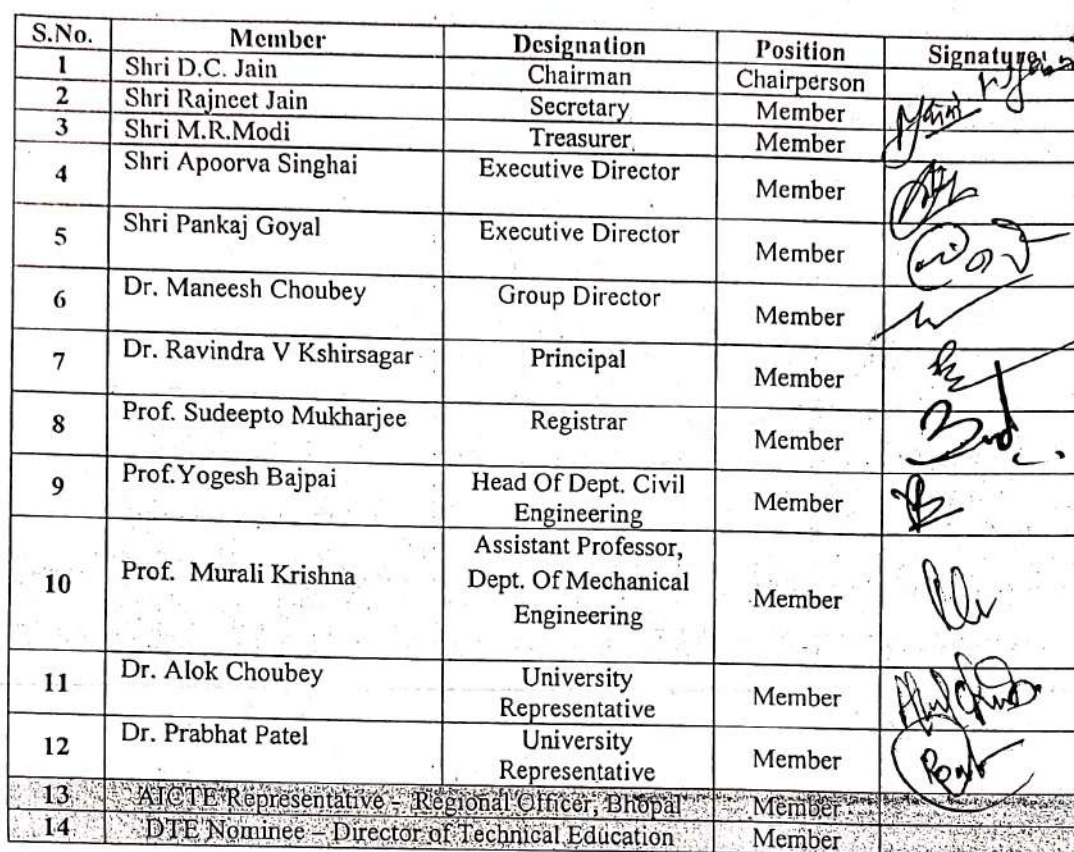 S.No. Member Designation Position Signature
1 Shri D.C. Jain Chairman Chairperson
2 Shri Rajneet Jain Secretary Member
3 Shri M.R.Modi Treasurer Member
4 Shri Apoorva Singhai Executive Director Member
5 Shri Pankaj Goyal Executive Director Member
6 Dr. Maneesh Choubey Group Director Member
7 Dr. Ravindra V Kshirsagar Principal Member
8 Prof. Sudeepto Mukharjee Registrar Member
9 Prof.Yogesh Bajpai Head Of Dept. Civil Member
Engineering
Assistant Professor,
10 Prof. Murali Krishna Dept. Of Mechanical Member
Engineering
11 Dr. Alok Choubey University Member
Representative
12 Dr. Prabhat Patel University Member
Representative
13 AICTE Representative – Regional Officer, Bhopal Member
14 DTE Nominee – Director of Technical Education Member